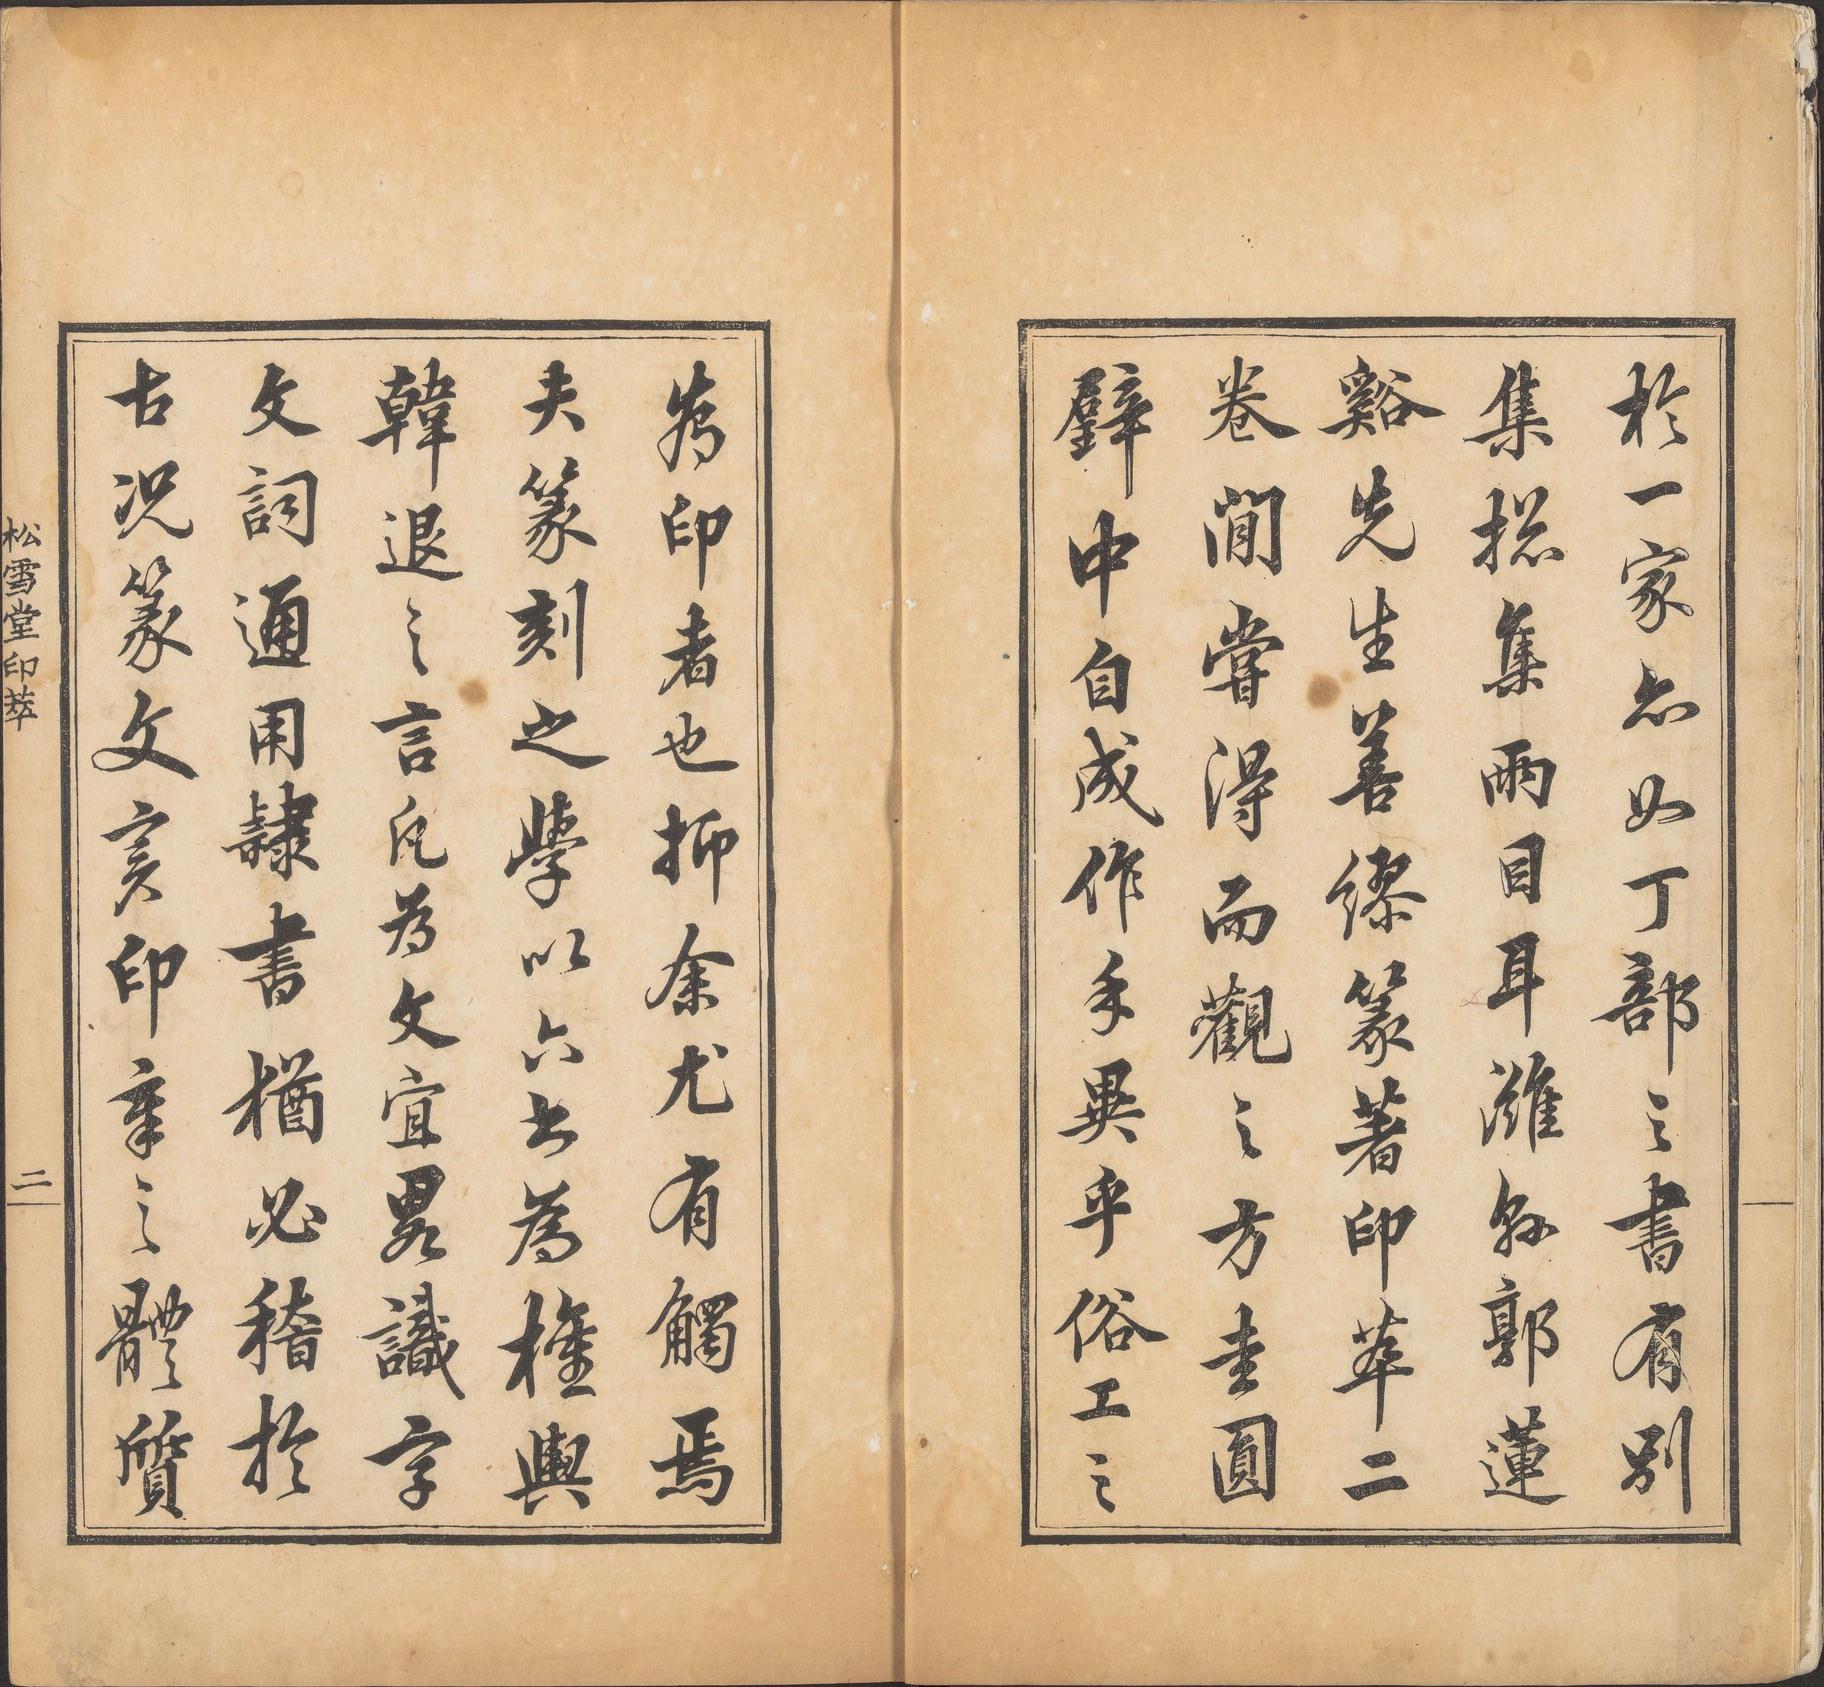 於一家亦如丁部之書有別
集揔集兩目耳濰縣郭蓮
谿先生善繆篆著印萃二
卷間嘗得而觀之方圭圓
璧中自成作手異乎俗工之
為印者也抑余尤有觸焉
夫篆刻之學以六書為權輿
韓退之言凡為文宜畧識字
文詞通用隸書猶必稽於
古況篆文亥印章之體質
松雪堂印萃
二